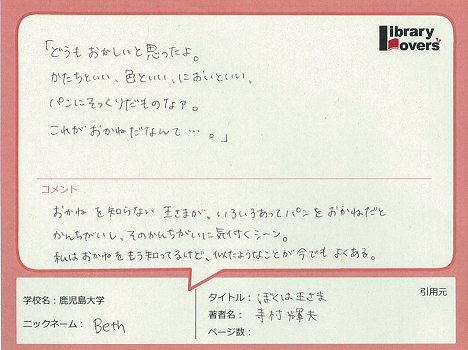 Library Lovers'
「どうもおかしいと思ったよ。
かたちといい、色といい、においといい、
パンにそっくりだものなァ。
これがおかねだなんて…。」
コメント
おかねを知らない王さまが、いろいろあってパンをおかねだと
かんちがいし、そのかんちがいに気付くシーン。
私はおかねをもう知ってるけど、似たようなことが今でもよくある。
学校名：鹿児島大学
ニックネーム：Beth
タイトル：ぼくは王さま
引用元
著者名：寺村輝夫
ページ数：